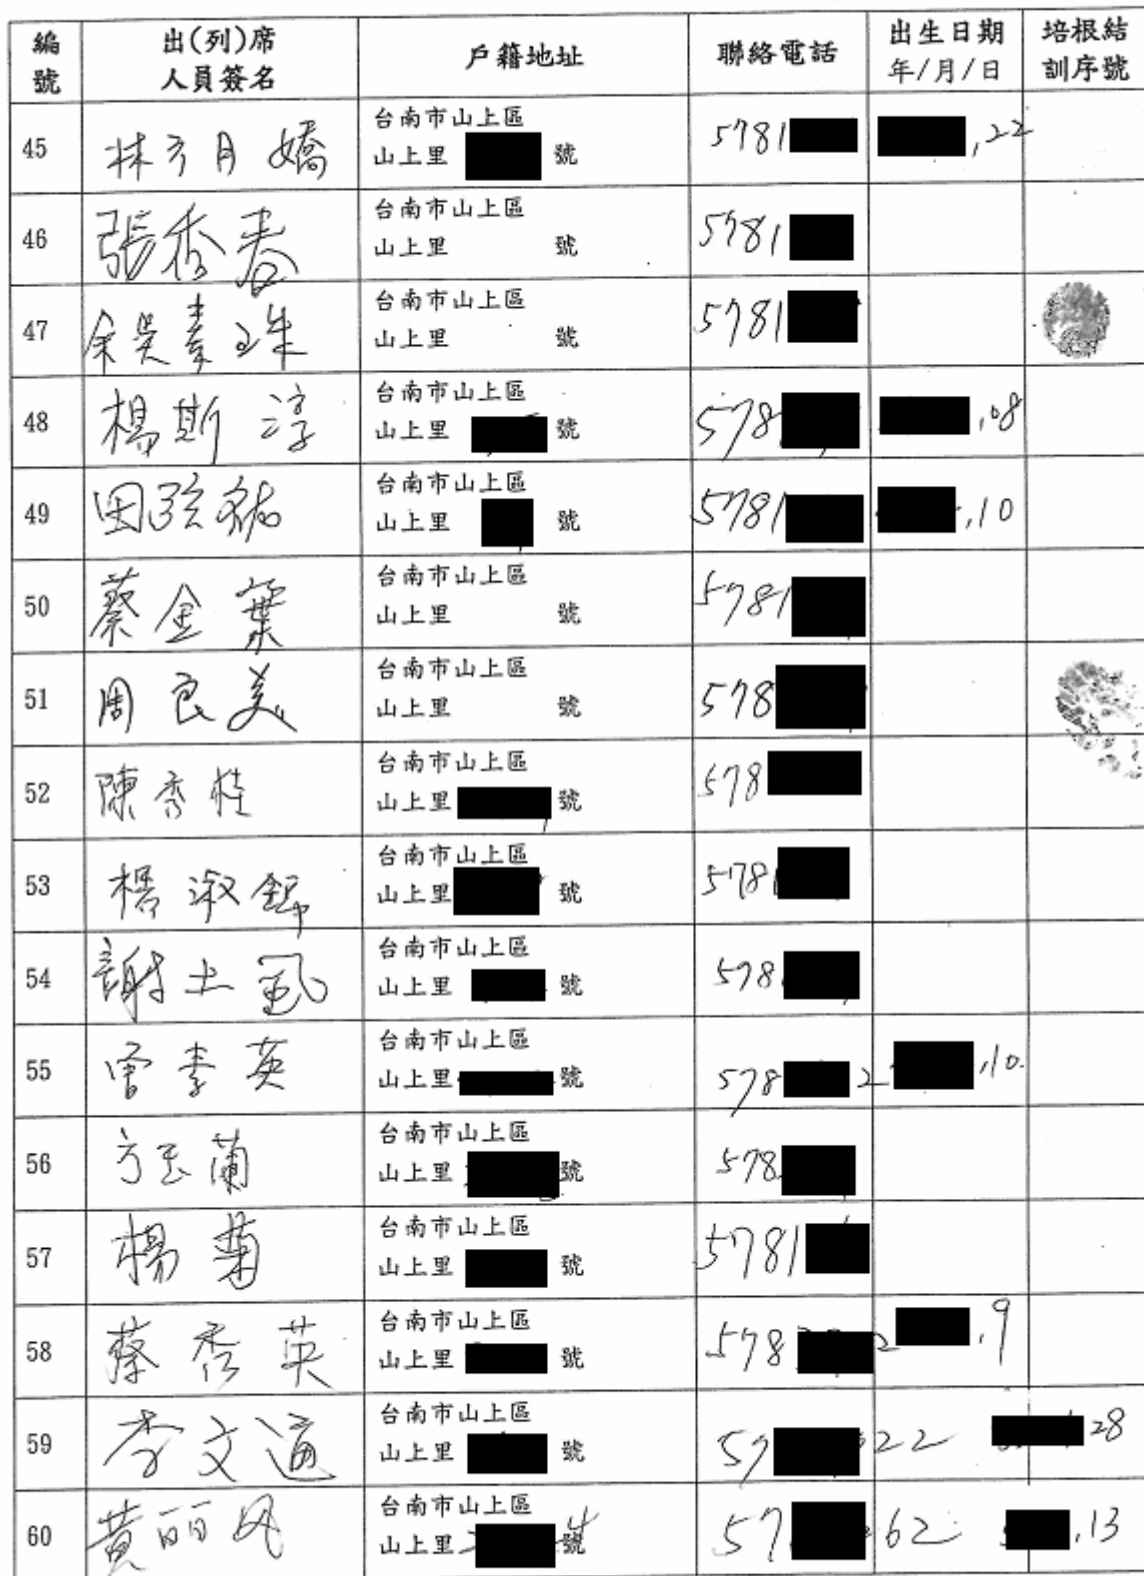 編號 出(列)席人員簽名 戶籍地址 聯絡電話 出生日期 年/月/日 培根結訓序號
45 林方月嬌 台南市山上區 山上里 號 5781 .22
46 張秀春 台南市山上區 山上里 號 5781
47 余吳素珠 台南市山上區 山上里 號 5781
48 楊斯淳 台南市山上區 山上里 號 578 .08
49 田弦祐 台南市山上區 山上里 號 5781 .10
50 蔡金葉 台南市山上區 山上里 號 5781
51 周良美 台南市山上區 山上里 號 578
52 陳秀桂 台南市山上區 山上里 號 578
53 楊淑 台南市山上區 山上里 號 578
54 謝土 台南市山上區 山上里 號 578
55 曾李英 台南市山上區 山上里 號 578 2 .10.
56 方玉蘭 台南市山上區 山上里 號 578
57 楊菊 台南市山上區 山上里 號 5781
58 蔡秀英 台南市山上區 山上里 號 578 2 .9
59 李文通 台南市山上區 山上里 號 57 22 28
60 黃丽 台南市山上區 山上里 號 57 62 .13